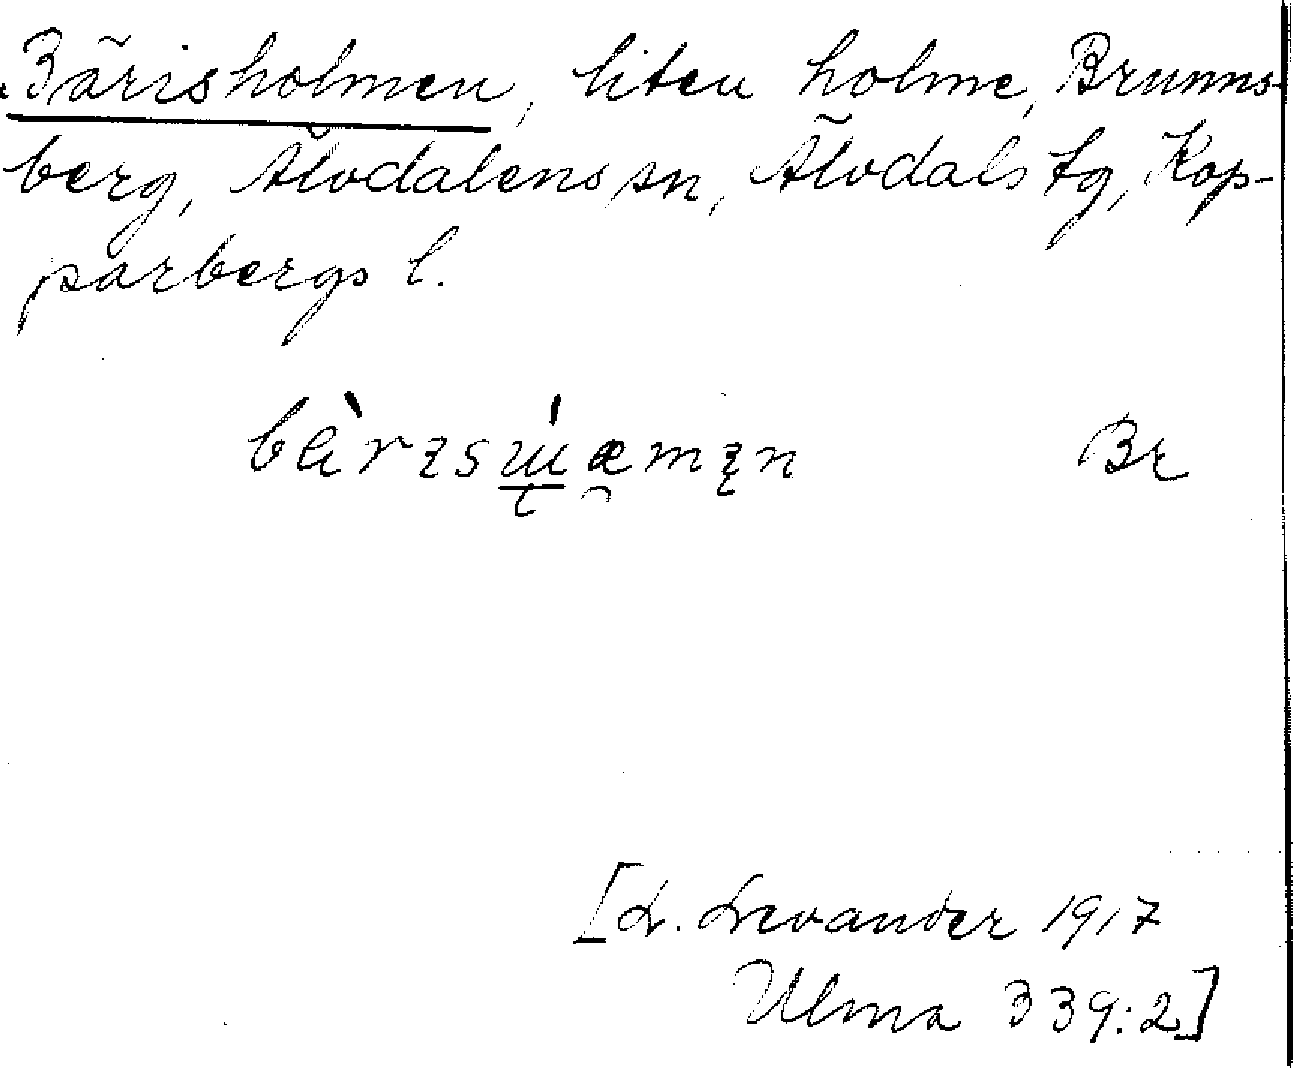 Bärisholmen, liten holme, Brunns-
berg, Älvdalens sn, Älvdals tg, Kop-
parbergs l.
Br
[L. Levander 1917
Ulma 339:2]